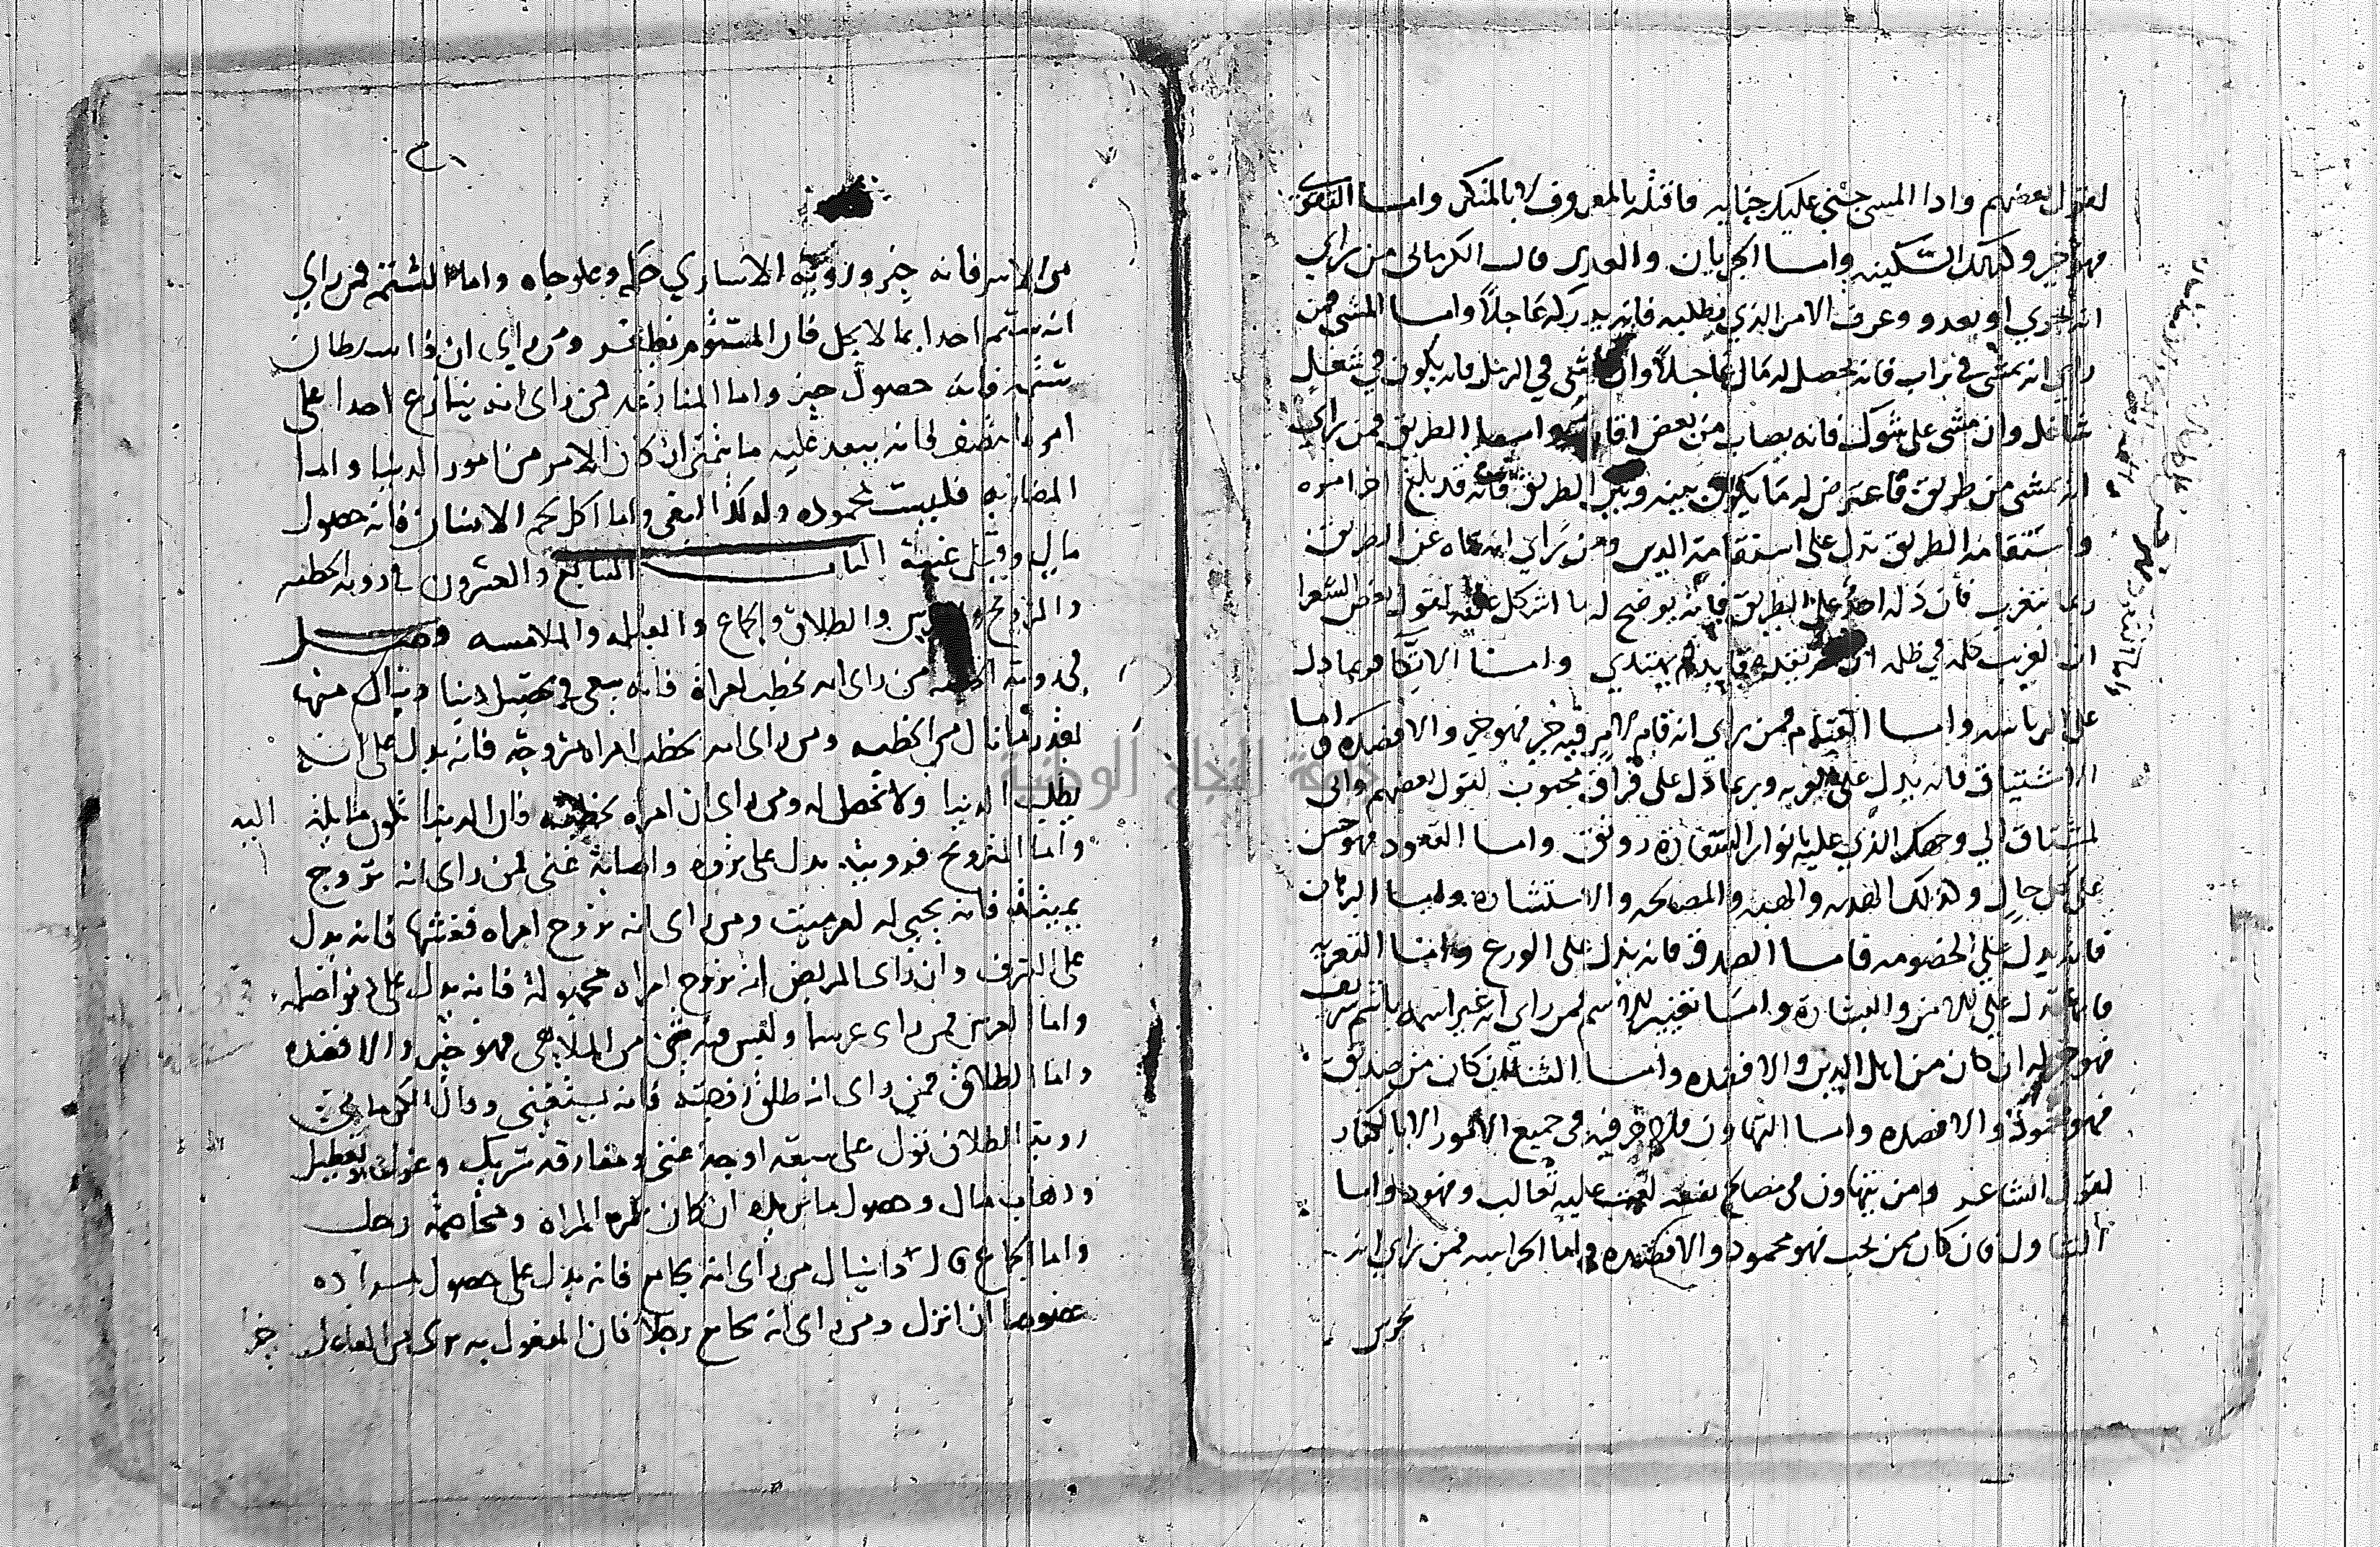 لقول بعضهم واذا المسي جنى عليك جنايه فاقتله بالمعروف لا بالمنكر واما التقوى
فهو خير وكذلك السكينه واما الجريان والعدو قال الكرماني من راى
انه يجري او يعدو وعرف الامر الذي يطلبه فانه يدركه عاجلاً واما المشي فمن
راي انه يمشي في تراب فانه يحصل له مال عاجلاً وان مشي في الرمل فانه يكون في شغل
شاغل وان مشى على شوك فانه يصاب من بعض اقاربه واما الطريق فمن راي
انه يمشي من طريق فاعترض له ما يكون بينه وبين الطريق فانه قد بلغ اخر امره
واستقامة الطريق تدل على استقامة الدين ومن راي انه تاه عن الطريق
ربما يتغرب فان دله احد على الطريق فانه يوضح له ما اشكل عليه لقول بعض الشعرا
ان الغريب كله في ظله ان لم يقده قايد لم يهتدي واما الاتكا فربما دل
على الرياسه واما القيام فمن راي انه قام لامر فيه خير فهو خير والا فضده واما
الاشتياق فانه يدل على التوبه وربما دل على فراق محبوب لقول بعضهم واني
لمشتاق الى وجهك الذي عليه انوار السعادة رونق واما القعود فهو حسن
على كل حال وكذلك الهديه والهبه والمصالحه والاستشاره واما الرهان
فانه يدل على الخصومه فاما الصدق فانه يدل على الورع واما التعزيه
فانها تدل على الامن والبشارة واما تغيير الاسم لمن راي انه غير اسمه باسم شريف
فهو خير له ان كان من اهل الدين والا فضده واما الثنا ان كان من صديق
فهو محمود والا فضده واما التهاون فلا خير فيه في جميع الامور الا بالكفار
لقول الشاعر ومن يتهاون في مصالح نفسه لعبت عليه ثعالب وفهود واما
التناول فان كان ممن يحب فهو محمود والا فضده واما الحراسه فمن راي انه
يحرس
من الاسر فانه خير ورؤية الاساري حكم وعلو جاه واما الشتم فمن راي
انه يشتم احدا بما لا يحل فان المشتوم يظفر ومن راي ان ذا سلطان
شتمه فانه حصول خير واما المنازعه فمن راى انه ينازع احدا على
امر فانه يبعد عليه ما يتمنى ان كان الامر من امور الدنيا واما
المضاربه فليست بمحموده وكذلك البغي واما اكل لحم الانسان فانه حصول
مال وقيل غنية الباب السابع والعشرون في رؤية الخطبه
والتزويج والعرس والطلاق والجماع والقبله والملامسه فصل
في رؤية الخطبه من راى انه يخطب امراة فانه يسعى في تحصيل دنيا وينال منها
بقدر ما نال من الخطبه ومن راى انه يخطب امراه متزوجه فانه يدل على انه
يطلب الدنيا ولا تحصل له ومن راى ان امراه تخطبه فان الدنيا تكون مايلة اليه
واما التزويج فرويته يدل على ثروه واصابة غنى فمن راى انه تزوج
بميتة فانه يحيي له امر ميت ومن راى انه تزوج امراه فغشيها فانه يدل
على الترف وان راى المريض انه تزوج امراه مجهولة فانه يدل على
واما العرس فمن راى عرسا وليس فيه شي من الملاهي فهو خير والا فضده
واما الطلاق فمن راى انه طلق زوجته فانه يستغني وقال الكرماني
روية الطلاق تؤل على سبعة اوجه غنى ومفارقة شريك وعزل وتعطيل
وذهاب مال وحصول ما يريده ان كان يكره المراه ومخاصمة رجل
واما الجماع قال دانيال من راى انه يجامع فانه يدل على حصول مراده
خصوصا ان انزل ومن راى انه يجامع رجلا فان المفعول به يرى من الفاعل خيرا
جامعة النجاح الوطنية